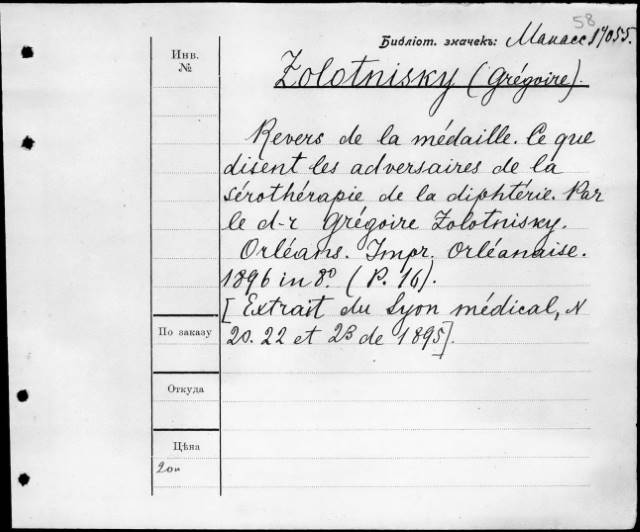 58
Библіот. значекъ: Манасс 17055.
Инв.
№
Zolotnisky (Grégoire).
Revers de la médaille. Ce que
disent les adversaires de la
sérothérapie de la diphtérie. Par
le d-r Grégoire Zolotnisky.
Orléans. Impr. Orléanaise.
1896 in 8º. (P. 16).
[Extrait du Lyon médical, N
20. 22 et 23 de 1895].
По заказу
Откуда
Цѣна